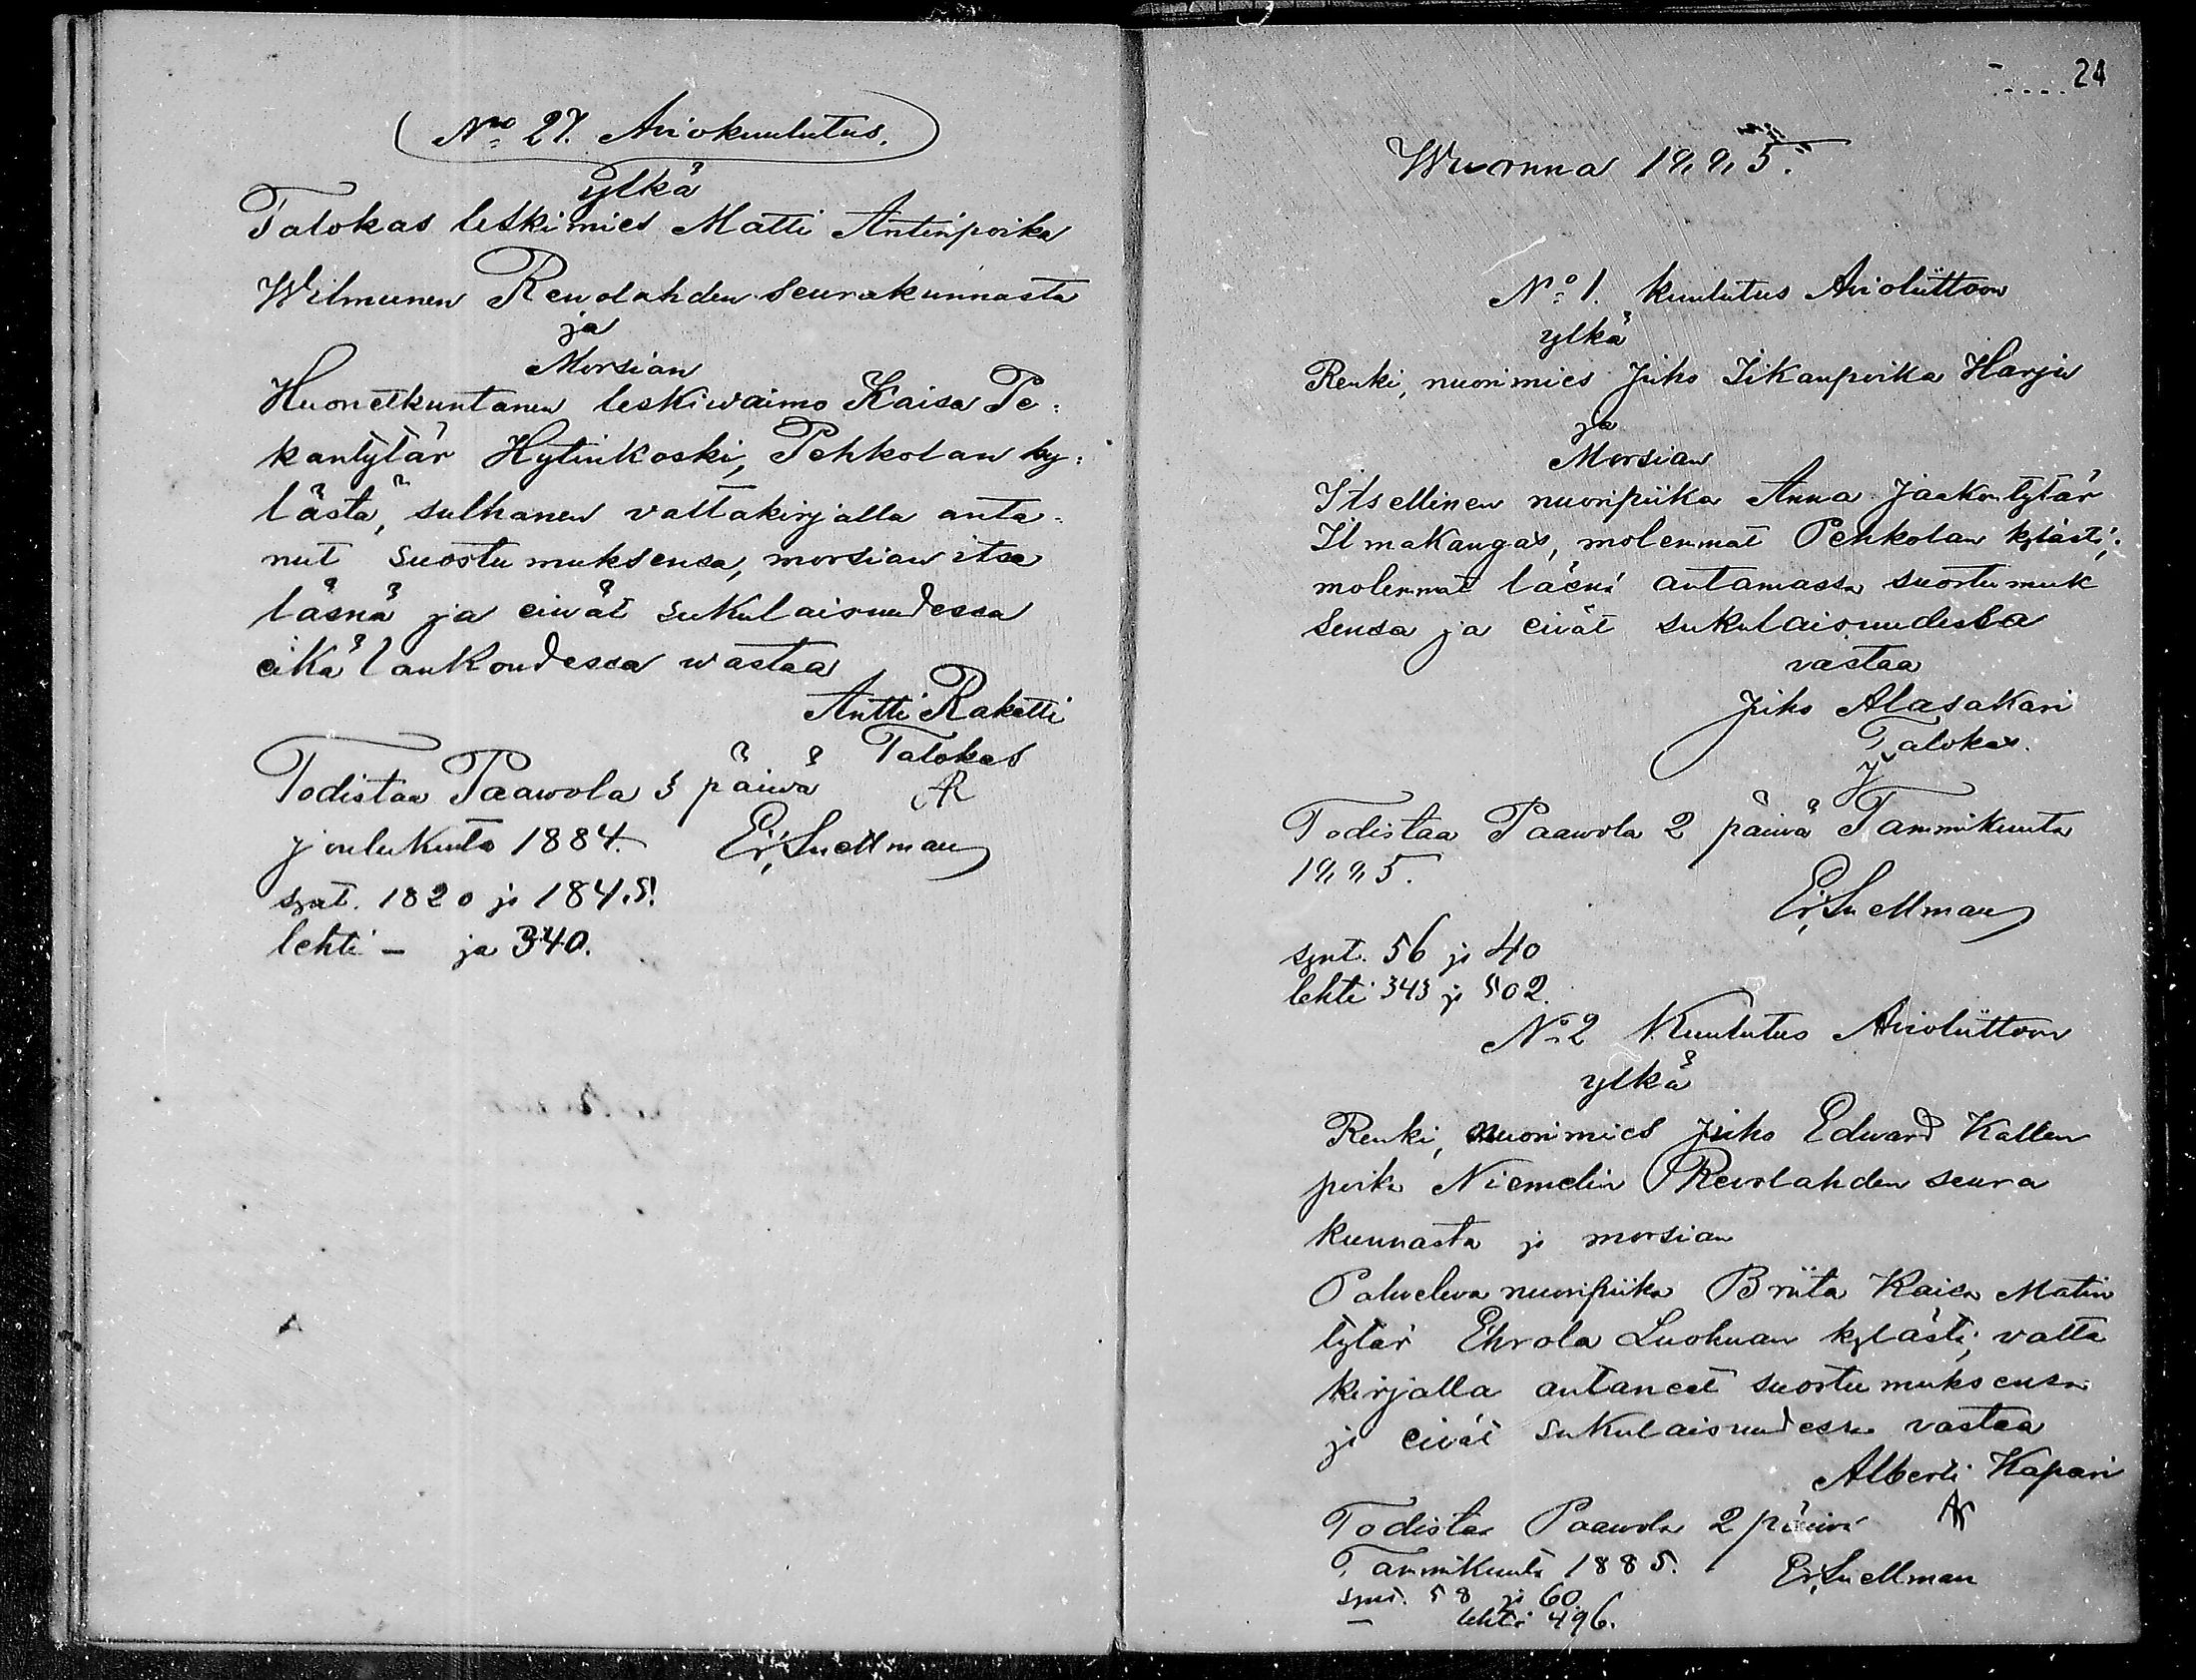 No 27. Aviokuulutus.
ylkä
Talokas leskimies Matti Antinpoika
Wilmunen Revolahden seurakunnasta
ja
Morsian
Huonetkuntanen leskiwaimo Kaisa Pe=
kantytär Hytinkoski, Pehkolan ky=
lästä, sulhanen valtakirjalla anta=
nut suostumuksensa, morsian itse
läsnä ja eiwät sukulaisuudessa
eikä lankoudessa wastaa
Antti Raketti
Talokas
AR
Todistaa Paawola 3 päiwä
joulukuuta 1884. Er. Snellman
synt. 1820 ja 1845.
lehti – ja 340.
24
Wuonna 1885.
No 1. kuulutus Avioliittoon
ylkä
Renki, nuorimies Juho Iikanpoika Harju
ja
Morsian
Itsellinen nuoripiika Anna Jaakontytär
Ilmakangas, molemmat Pehkolan kylästä;
molemmat läsnä antamassa suostumuk
sensa ja eivät sukulaisuudessa
vastaa
Juho Alasakari
Talokas.
Todistaa Paawola 2 päiwä Tammikuuta
1885.
Er. Snellman
synt. 56 ja 40
lehti 343 ja 502.
No 2 Kuulutus Avioliittoon
ylkä
Renki, nuorimies Juho Edward Kallen
poika Niemelin Revolahden seura
kunnasta ja morsian
Palveleva nuoripiika Briita Kaisa Matin
tytär Ehrola Luohuan kylästä, valta
kirjalla antaneet suostumuksensa
ja eivät sukulaisuudessa vastaa
Alberti Kapari
Todistaa Paawola 2 päiwä
Tammikuuta 1885. Er. Snellman
synt. 58 ja 60
– lehti 496.